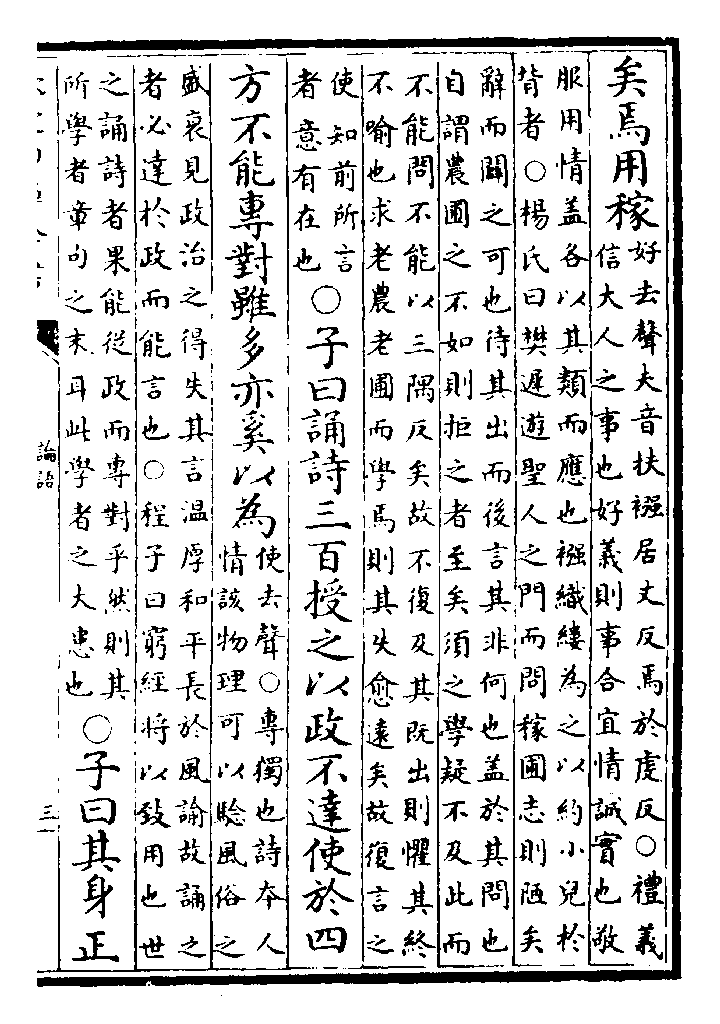 矣焉用稼
好去聲夫音扶襁居丈反焉於虔反○禮義
信大人之事也好義則事合宜情誠實也敬
服用情盖各以其類而應也襁織縷為之以約小兒於
背者○楊氏曰樊遲遊聖人之門而問稼圃志則陋矣
辭而闢之可也待其出而後言其非何也盖於其問也
自謂農圃之不如則拒之者至矣須之學疑不及此而
不能問不能以三隅反矣故不復及其既出則懼其終
不喻也求老農老圃而學焉則其失愈遠矣故復言之
使知前所言
者意有在也
○子曰誦詩三百授之以政不達使於四
方不能專對雖多亦奚以為
使去聲○專獨也詩本人
情該物理可以驗風俗之
盛衰見政治之得失其言温厚和平長於風諭故誦之
者必達於政而能言也○程子曰窮經將以致用也世
之誦詩者果能從政而專對乎然則其
所學者章句之末耳此學者之大患也
○子曰其身正
論語